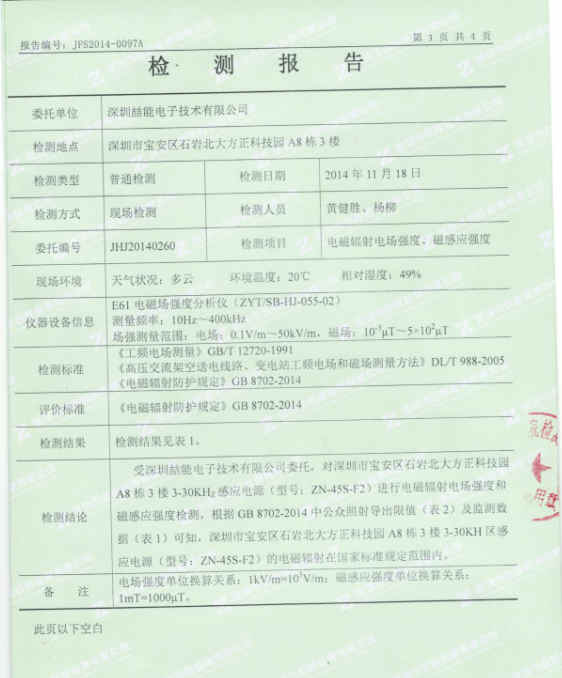 报告编号：JFS2014-0097A
第 3 页 共 4 页
检 测 报 告
委托单位 深圳喆能电子技术有限公司
检测地点 深圳市宝安区石岩北大方正科技园 A8 栋 3 楼
检测类型 普通检测 检测日期 2014 年 11 月 18 日
检测方式 现场检测 检测人员 黄健胜、杨柳
委托编号 JHJ20140260 检测项目 电磁辐射电场强度、磁感应强度
现场环境 天气状况：多云 环境温度：20℃ 相对湿度：49%
仪器设备信息
E61 电磁场强度分析仪（ZYT/SB-HJ-055-02）
测量频率：10Hz～400kHz
场强测量范围：电场：0.1V/m～50kV/m，磁场：10⁻³μT～5×10²μT
检测标准
《工频电场测量》GB/T 12720-1991
《高压交流架空送电线路、变电站工频电场和磁场测量方法》DL/T 988-2005
《电磁辐射防护规定》GB 8702-2014
评价标准 《电磁辐射防护规定》GB 8702-2014
检测结果 检测结果见表 1。
检测结论
受深圳喆能电子技术有限公司委托，对深圳市宝安区石岩北大方正科技园
A8 栋 3 楼 3-30KHz 感应电源（型号：ZN-45S-F2）进行电磁辐射电场强度和
磁感应强度检测，根据 GB 8702-2014 中公众照射导出限值（表 2）及监测数
据（表 1）可知，深圳市宝安区石岩北大方正科技园 A8 栋 3 楼 3-30KH 区感
应电源（型号：ZN-45S-F2）的电磁辐射在国家标准规定范围内。
备 注
电场强度单位换算关系：1kV/m=10³V/m；磁感应强度单位换算关系：
1mT=1000μT。
此页以下空白